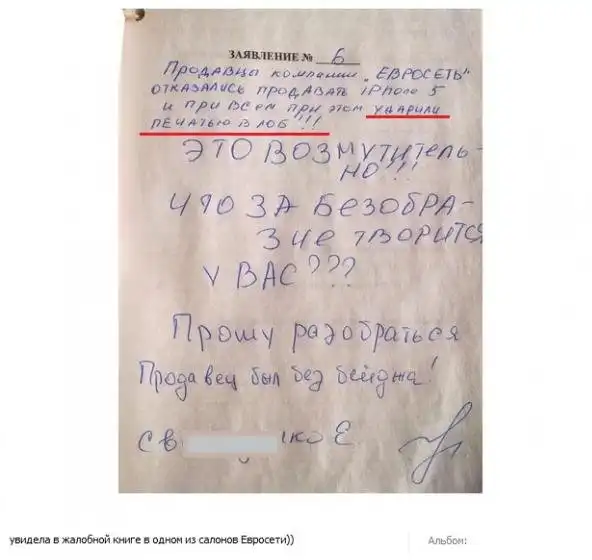 ЗАЯВЛЕНИЕ № 6
ПРОДАВЦЫ КОМПАНИИ „ЕВРОСЕТЬ"
ОТКАЗАЛИСЬ ПРОДАВАТЬ iPhone 5
И ПРИ ВСЕМ ПРИ ЭТОМ УДАРИЛИ
ПЕЧАТЬЮ В ЛОБ!!!
ЭТО ВОЗМУТИТЕЛЬ-
НО!!!
ЧТО ЗА БЕЗОБРА-
ЗИЕ ТВОРИТСЯ
У ВАС???
Прошу разобраться
Продавец был без бейджа!
С в ко Е
увидела в жалобной книге в одном из салонов Евросети))
Альбом: